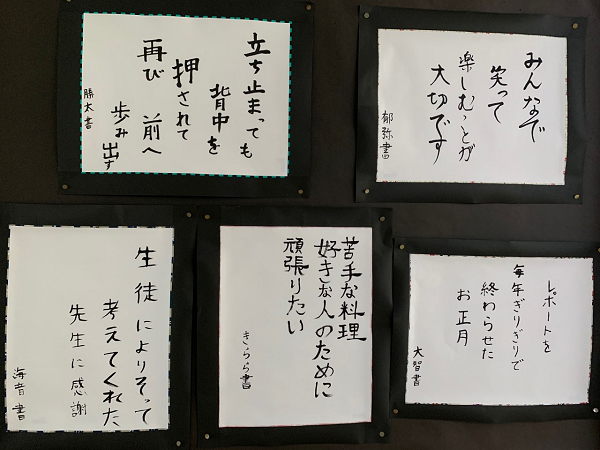 立ち止まっても
背中を
押されて
再び 前へ
歩み出す
勝太書
みんなで
笑って
楽しむっとが
大切です
郁弥書
生徒によりそって
考えてくれた
先生に感謝
海音書
苦手な料理
好きな人のために
頑張りたい
きらら書
レポートを
毎年ぎりぎりで
終わらせた
お正月
大智書